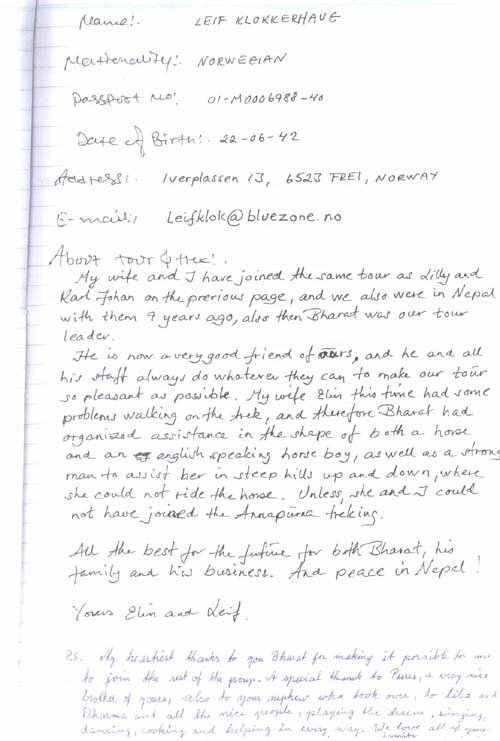 Name:. LEIF KLOKKERHAUG
Nationality:. NORWEGIAN
Passport no: 01-M0006988-40
Date of Birth:. 22-06-42
Address:. Iverplassen 13, 6523 FREI, NORWAY
E-mail:, Leifklok@bluezone.no
About tour & trek:.
My wife and I have joined the same tour as Lilly and
Karl Johan on the previous page, and we also were in Nepal
with them 9 years ago, also then Bharat was our tour
leader.
He is now a very good friend of ours, and he and all
his staff always do whatever they can to make our tour
so pleasant as possible. My wife Elin this time had some
problems walking on the trek, and therefore Bharat had
organized assistance in the shape of both a horse
and an english speaking horse boy, as well as a strong
man to assist her in steep hills up and down, where
she could not ride the horse. Unless, she and I could
not have joined the Annapurna treking.
All the best for the future for both Bharat, his
family and his business. And peace in Nepal!
Yours Elin and Leif.
P.S. My heartiest thanks to you Bharat for making it possible for me
to join the rest of the group. A special thank to a very nice
brother of yours, also to your nephew who took over, to Lila and
Dharma and all the nice people, playing the drum, singing,
dancing, cooking and helping in every way. We love all of you